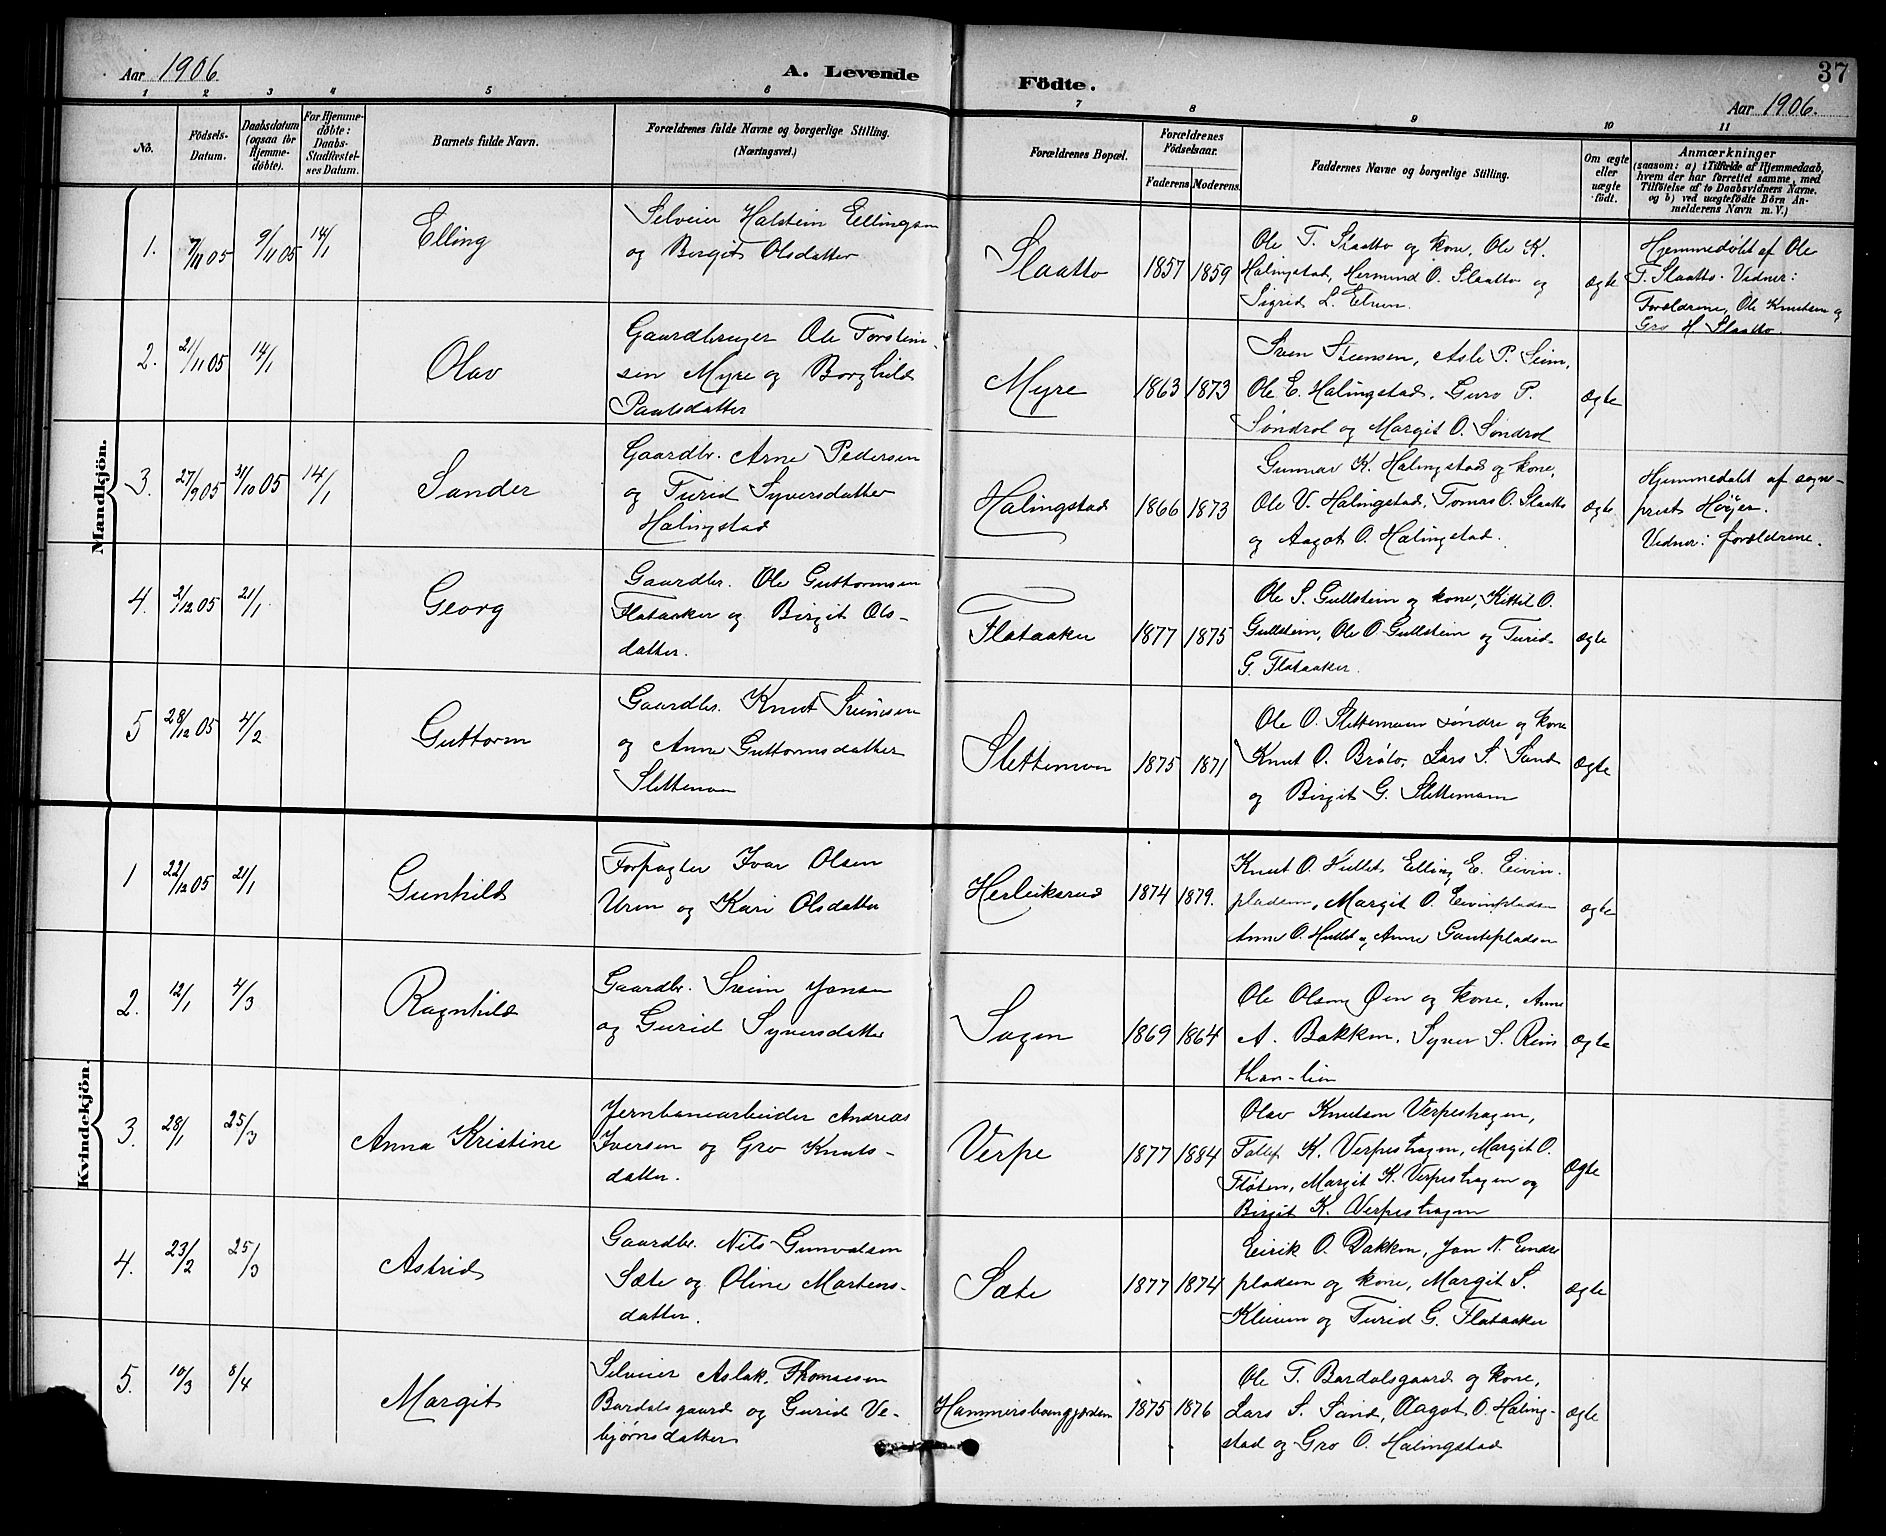 Aar 1906.
A. Levende
Födte.
37
Aar 1906.
1 2 3 4 5 6 7 8 9 10 11
No.
Födsels-
Datum.
Daabsdatum
(ogsaa for
Hjemme-
døbte).
For Hjemme-
døbte:
Daabs-
Stadfæstel-
ses Datum.
Barnets fulde Navn.
Forældrenes fulde Navne og borgerlige Stilling.
(Næringsvei.)
Forældrenes Bopæl.
Forældrenes
Födselsaar.
Faderens
Moderens.
Faddernes Navne og borgerlige Stilling.
Om ægte
eller
uægte
født.
Anmærkninger
(saasom: a) i Tilfælde af Hjemmedaab,
hvem der har forrettet samme, med
Tilföielse af to Daabsvidners Navne.
og b) ved uægtefödte Börn An-
melderens Navn m. V.)
Mandkjön.
1. 7/11 05 9/11 05 14/1 Elling
Selveier Halstein Ellingsen
og Birgit Olsdatter
Slaatto 1857 1859
Ole T. Slaatto og kone, Ole K.
Halingstad, Hermund O. Slaatto og
Sigrid L. Elven.
ægte
Hjemmedøbt af Ole
T. Slaatto. Vidner:
Forældrene, Ole Knutsen og
Gro H. Slaatto.
2. 21/11 05 14/1 Olav
Gaardbruger Ole Torstein-
sen Myre og Borghild
Paulsdatter
Myre 1863 1873
Sven Steensen, Asle P. Seim,
Ole E. Halingstad, Guro P.
Søndrol og Margit O. Søndrol
ægte
3. 27/9 05 31/10 05 14/1 Sander
Gaardbr. Arne Pedersen
og Turid Syversdatter
Halingstad
Halingstad 1866 1873
Gunnar K. Halingstad og kone,
Ole V. Halingstad, Tomas O. Slaatto
og Aagot O. Halingstad.
ægte
Hjemmedøbt af sogne-
prest Höyer.
Vidner: forældrene.
4. 2/12 05 21/1 Georg
Gaardbr. Ole Guttormsen
Flataaker og Birgit Ols-
datter.
Flataaker 1877 1875
Ole S. Gullstein og kone, Kittil O.
Gullstein, Ole O Gullstein og Turid
G. Flataaker.
ægte
5 28/12 05 4/2 Guttorm
Gaardbr. Knut Sveinsen
og Anne Guttormsdatter
Slettemoen
Slettemoen 1875 1871
Ole O. Slettemoen søndre og kone
Knut O. Bråto, Lars S. Sand
og Birgit G. Slettemoen
Ægte
Kvindekjön.
1 22/12 05 21/1 Gunhild
Forpagter Ivar Olsen
Uren og Kari Olsdatter
Herleiksrud 1874 1879.
Knut O. Hullet, Elling E. Eivin-
pladsen, Margit O. Eivinpladsen
Anne O. Hullet og Anne Gautepladsen
ægte
2. 12/1 4/3 Ragnhild
Gaardbr. Svein Jonsen
og Gurid Syversdatter
Sagen 1869 1864
Ole Olsen Øen og kone, Anne
A. Bakken, Syver S. Reins
han-lien
Ægte
3. 28/1 25/3 Anna Kristine
Jernbanearbeider Andreas
Iversen og Gro Knuts-
datter.
Verpe 1877 1884
Olav Knutson Verpeshagen,
Tollef K. Verpeshagen, Margit O.
Fløten, Margit K. Verpeshagen og
Birgit K. Verpeshagen
Ægte
4. 23/2 25/3 Astrid
Gaardbr. Nils Gunvalsen
Sæte og Oline Martens-
datter.
Sæte 1877 1874
Eirik O. Bakken, Jon N. Endre
pladsen og kone, Margit S.
Kleiven og Turid G. Flataaker
Ægte
5. 10/3 8/4 Margit
Selveier Aslak Thomesen
Bardalsgaard og Gurid Ve-
bjørnsdatter
Hammersbøengjorden 1875 1876
Ole T. Bardalsgaard og kone,
Lars S. Sand, Aagot O. Haling-
stad og Gro O. Halingstad
ægte